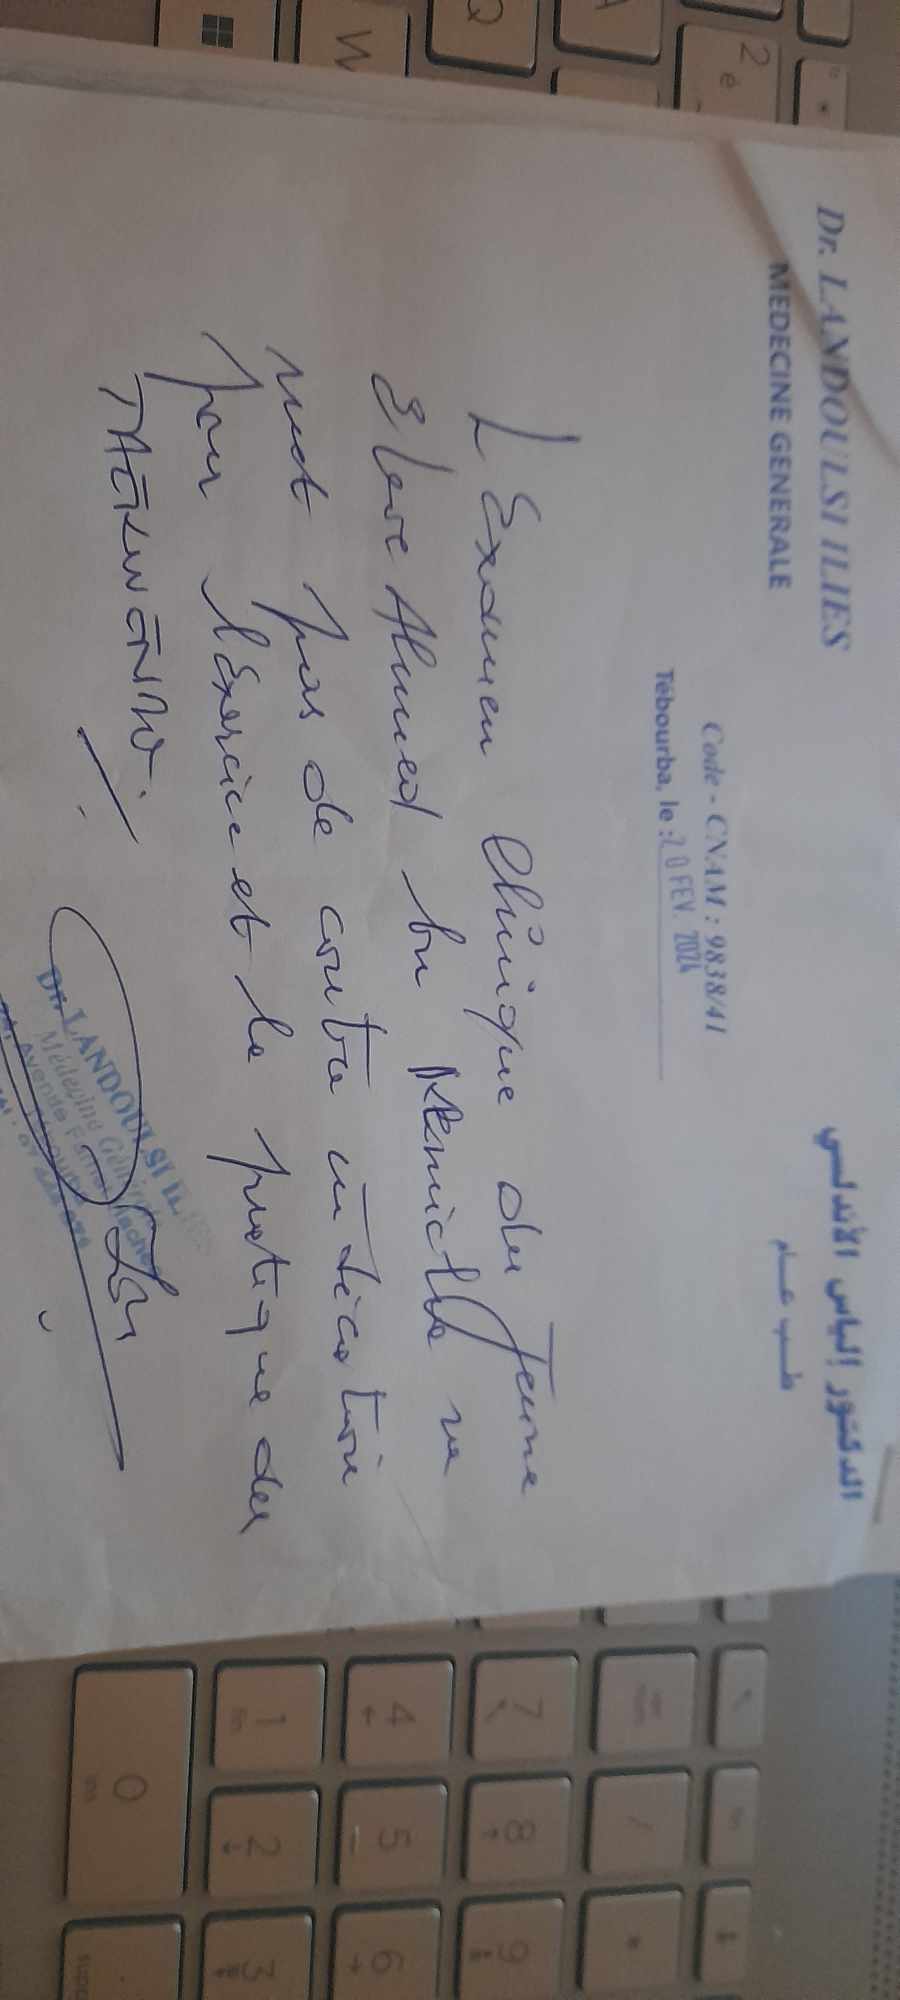 Dr. LANDOULSI ILIES
MEDECINE GENERALE
الدكتور إلياس الأندلسي
طب عام
Code - CNAM : 9838/41
Tébourba, le : 20 FEV. 2024
L'Examen clinique du Jeune
Eleve Ahmed ben ne
met pas de contre indication
pour l'Exercice et la pratique du
TAEKWONDO.
Dr. LANDOULSI ILIES
Médecine Générale
Avenue Farhat Hached
2
é
A
Q
W
7
8
9
4
5
6
1
2
3
0
/
*